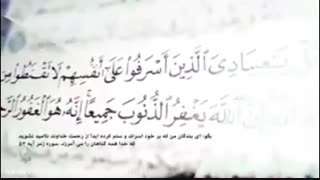 يَٰعِبَادِيَ ٱلَّذِينَ أَسْرَفُوا۟ عَلَىٰٓ أَنفُسِهِمْ لَا تَقْنَطُوا۟ مِن
ٱللَّهَ يَغْفِرُ ٱلذُّنُوبَ جَمِيعًا ۚ إِنَّهُۥ هُوَ ٱلْغَفُورُ
بگو: ای بندگان من که بر خود اسراف و ستم کرده اید! از رحمت خداوند ناامید نشوید
که خدا همه گناهان را می آمرزد. سوره زمر آیه ۵۳